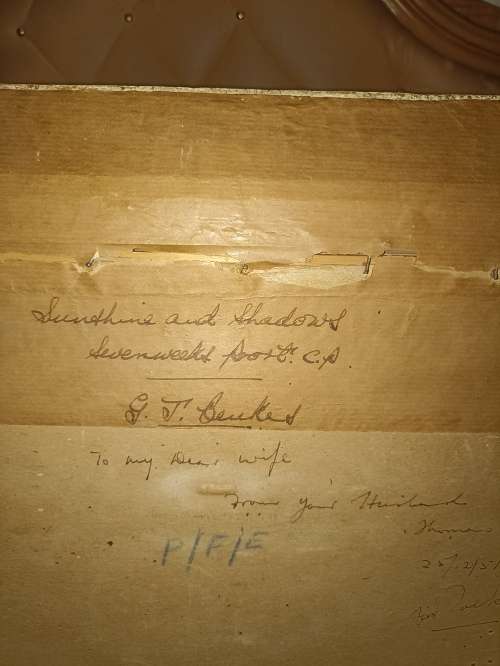 Sunshine and Shadows
Sevenweeks Poort. C.P.
G. T. Beukes
To my Dear wife
From your Husband
Thomas
P/F/E